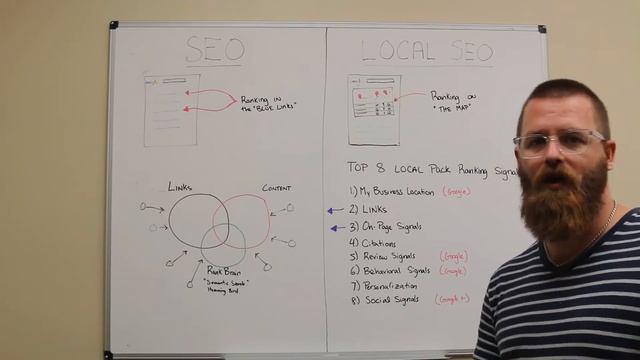 SEO
Ranking in
the "Blue Links"
Links
Content
RankBrain
"Semantic Search"
Humming Bird
LOCAL SEO
Ranking on
"THE MAP"
TOP 8 LOCAL Pack Ranking Signal
1) My Business Location (Google)
2) Links
3) On-Page Signals
4) Citations
5) Review Signals (Google)
6) Behavioral Signals (Google)
7) Personalization
8) Social Signals (Google +)